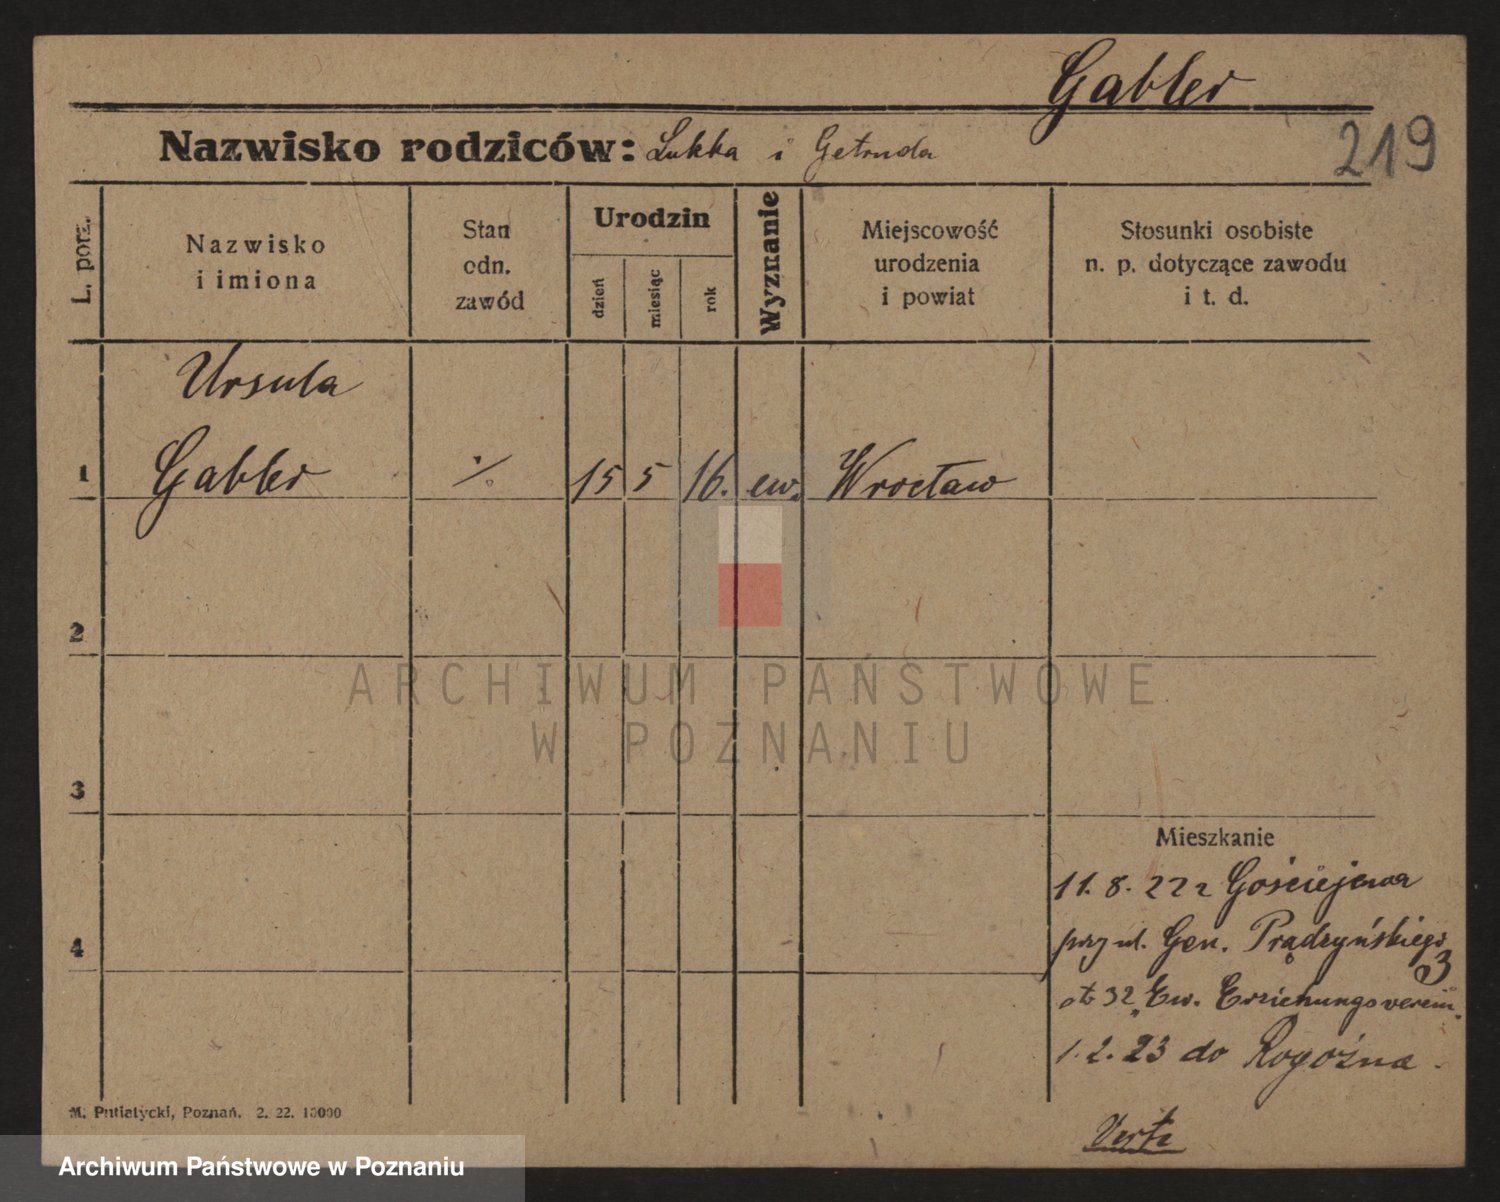 Gabler
219
Nazwisko rodziców: Lukka i Getruda
L. porz.
Nazwisko
i imiona
Stan
odn.
zawód
Urodzin
dzień
miesiąc
rok
Wyznanie
Miejscowość
urodzenia
i powiat
Stosunki osobiste
n. p. dotyczące zawodu
i t. d.
Ursula
1 Gabler ·/. 15 5 16. ew. Wrocław
2
ARCHIWUM PAŃSTWOWE
W POZNANIU
3
Mieszkanie
11. 8. 22 z Gościejewa
4
przy ul. Gen. Prądzyńskiego
3
32 „Ew. Erziehungsverein"
1. 2. 23 do Rogoźna.
M. Putiatycki, Poznań. 2. 22. 10000
Verte
Archiwum Państwowe w Poznaniu